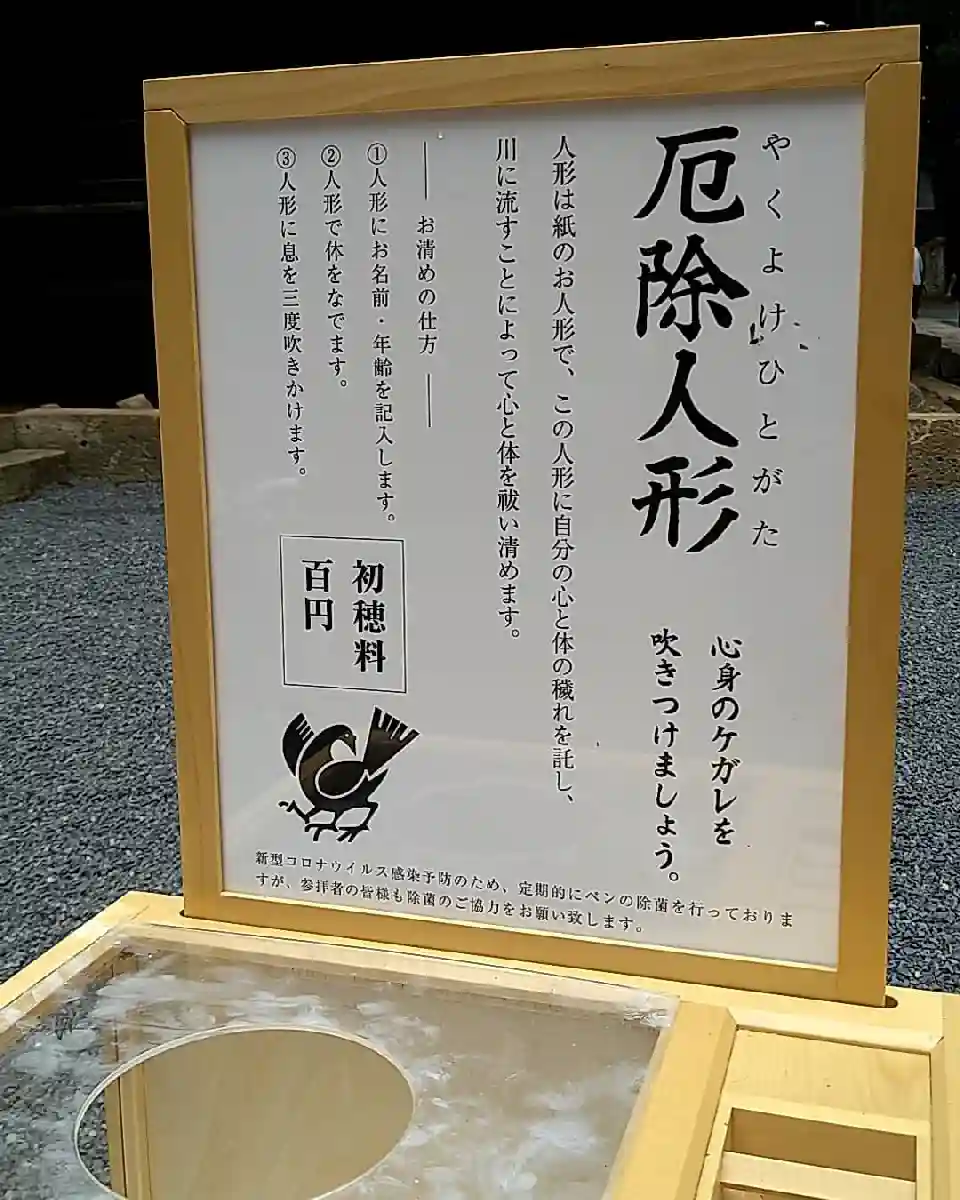 やくよけひとがた
厄除人形
心身のケガレを
吹きつけましょう。
人形は紙のお人形で、この人形に自分の心と体の穢れを託し、
川に流すことによって心と体を祓い清めます。
お清めの仕方
①人形にお名前・年齢を記入します。
②人形で体をなでます。
③人形に息を三度吹きかけます。
初穂料
百円
新型コロナウイルス感染予防のため、定期的にペンの除菌を行っておりま
すが、参拝者の皆様も除菌のご協力をお願い致します。